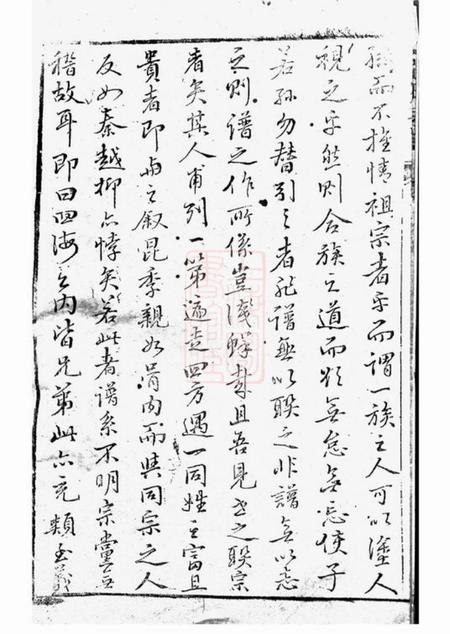 孫而不推情祖宗者乎而謂一族之人可以塗人
視之乎然則合族之道而欲無怠無忘使子
若孫勿替引之者非譜無以聯之非譜無以志
之則譜之作所係豈淺鮮哉且吾見世之聯宗
者矣其人甫列一第遍走四方遇一同姓之富且
貴者即與之敘昆季親如骨肉而與同宗之人
反如秦越抑亦悖矣若此者譜系不明宗黨無
稽故耳即曰四海之內皆兄弟此亦充類至義